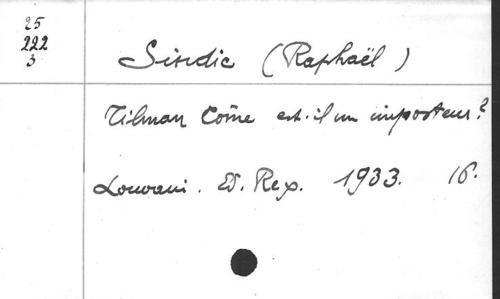 25
222
3
Sindic (Raphaël)
Tilman Côme est-il un imposteur?
Louvain. Ed. Rex. 1933. 16.